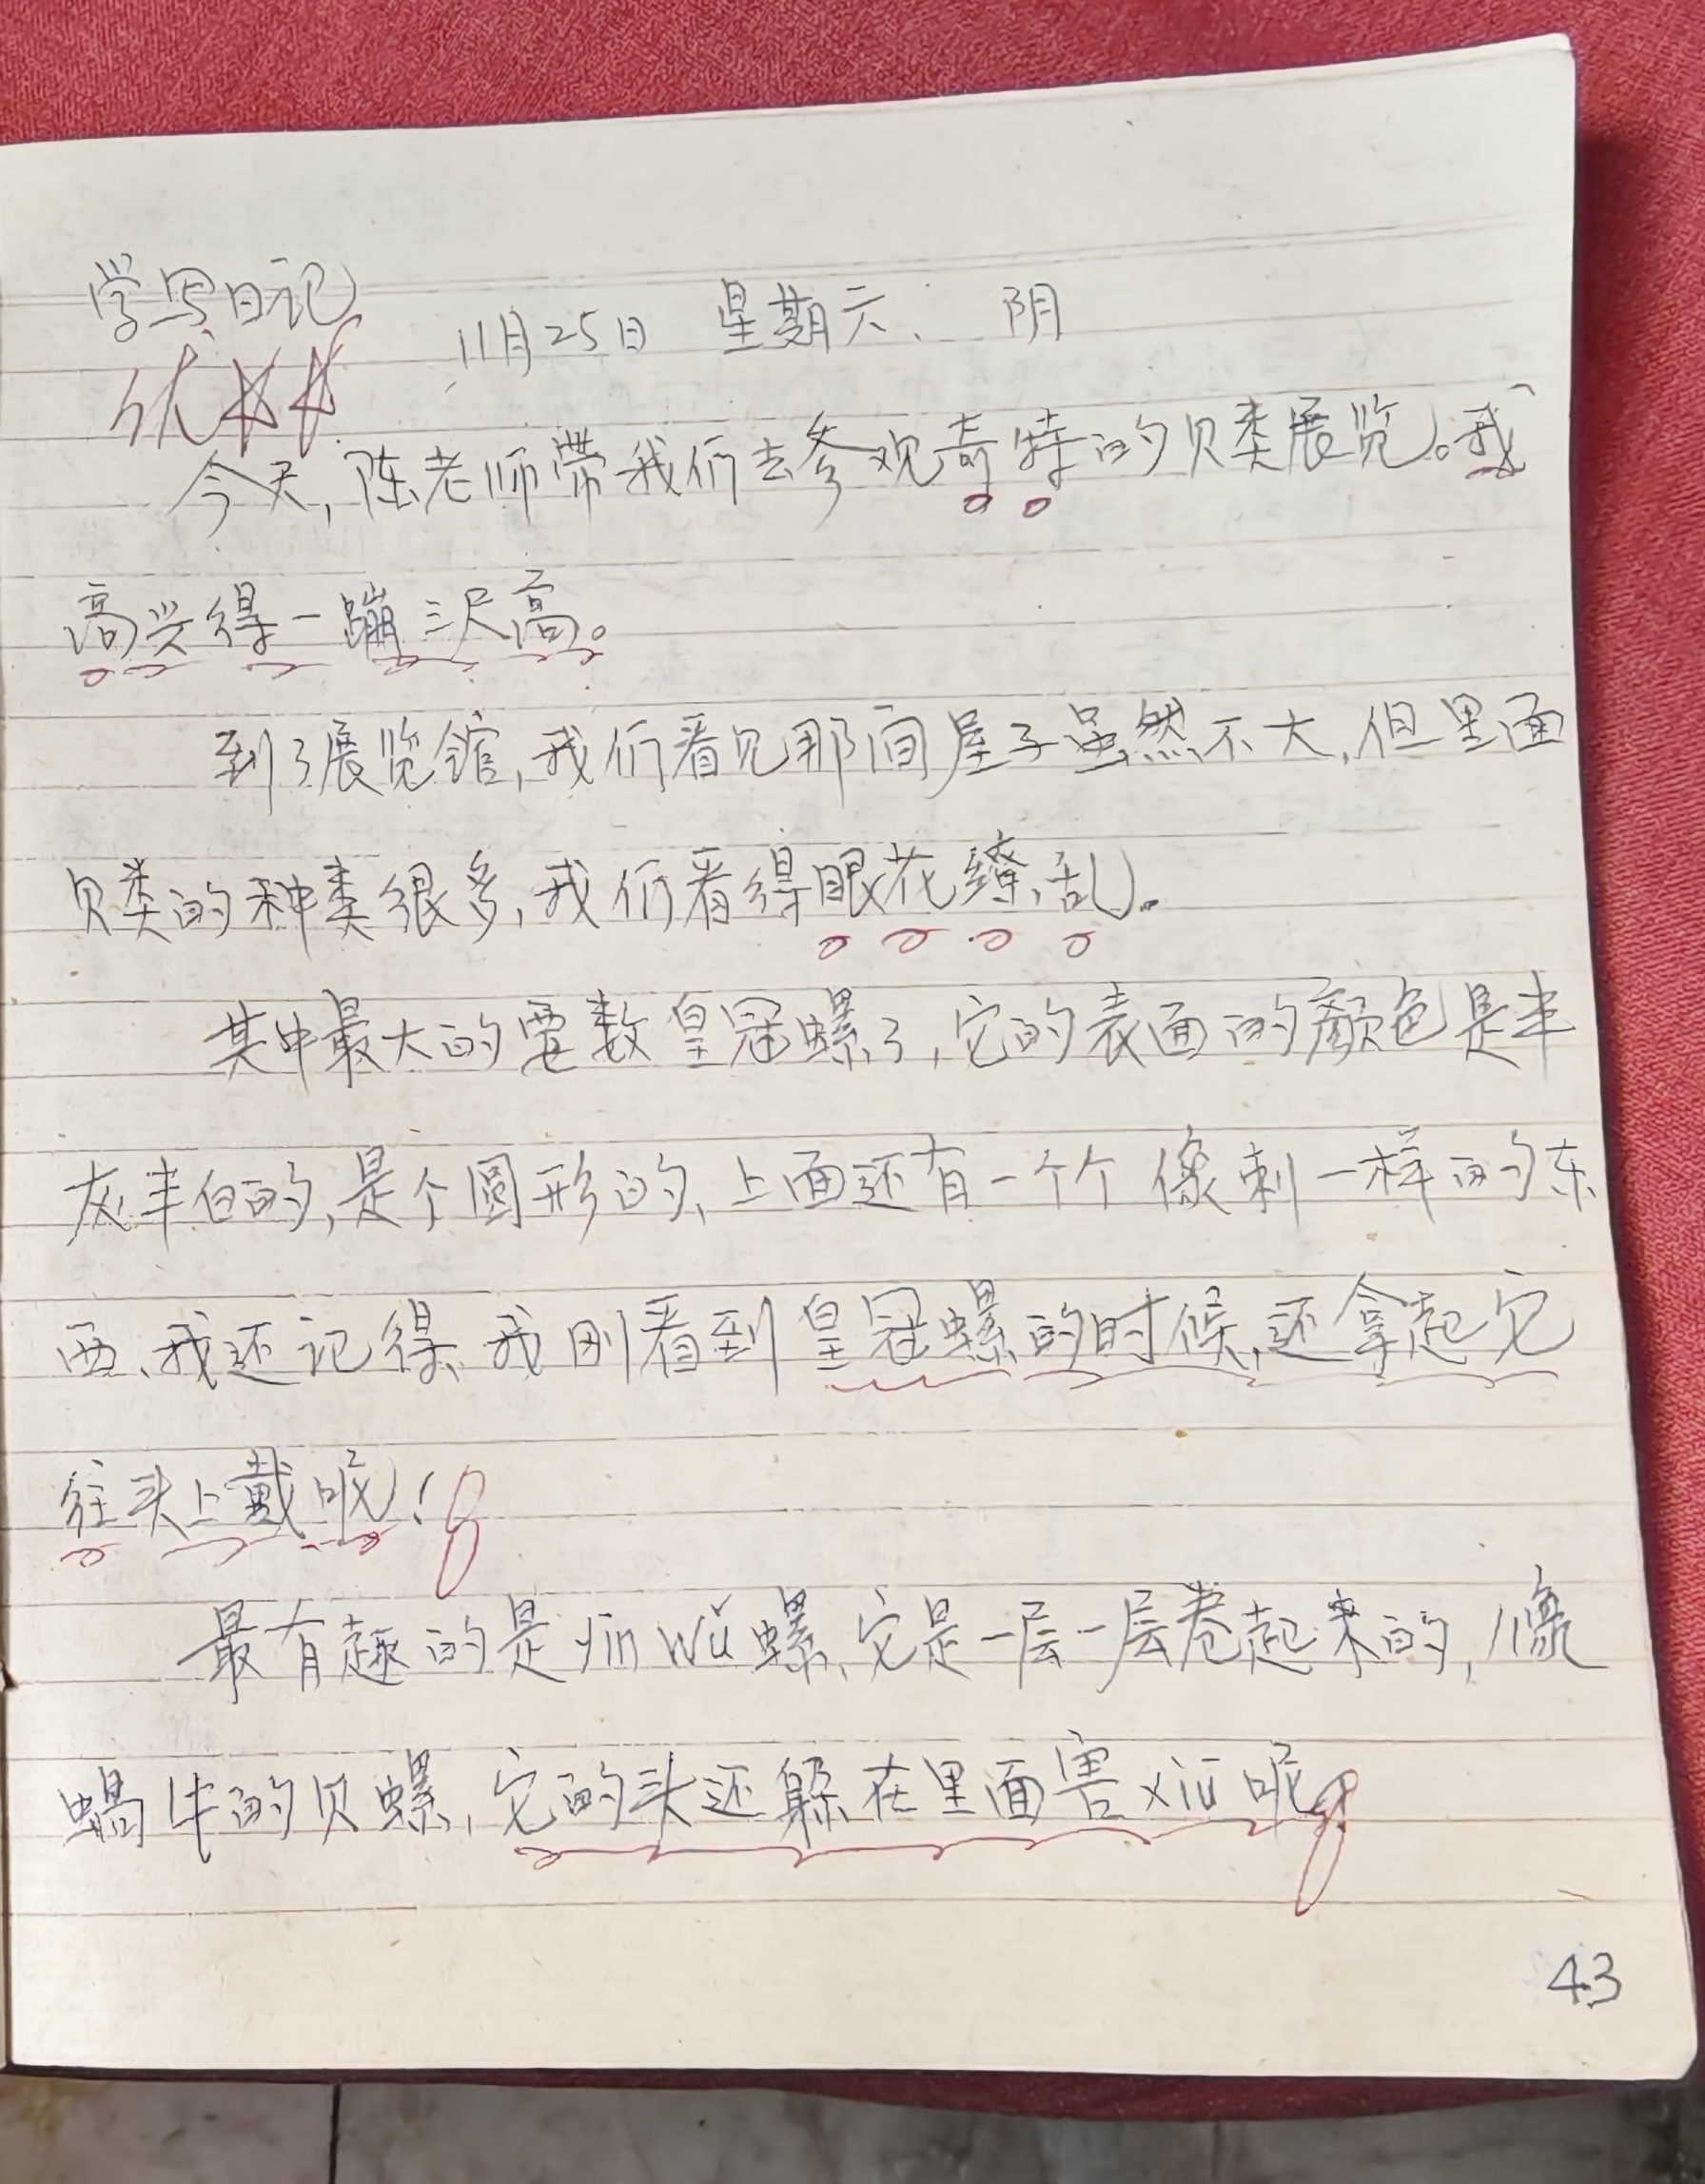 学写日记
11月25日 星期六、 阴
优
今天,陈老师带我们去参观奇特的贝类展览。我
高兴得一蹦三尺高。
到了展览馆,我们看见那间屋子虽然不大,但里面
贝类的种类很多,我们看得眼花缭乱。
其中最大的要数皇冠螺了,它的表面的颜色是半
灰半白的,是个圆形的,上面还有一个个像刺一样的东
西、我还记得、我刚看到皇冠螺的时候,还拿起它
往头上戴呢!
最有趣的是yīn wǔ螺、它是一层一层卷起来的,像
蜗牛的贝螺,它的头还躲在里面害xiū呢
43